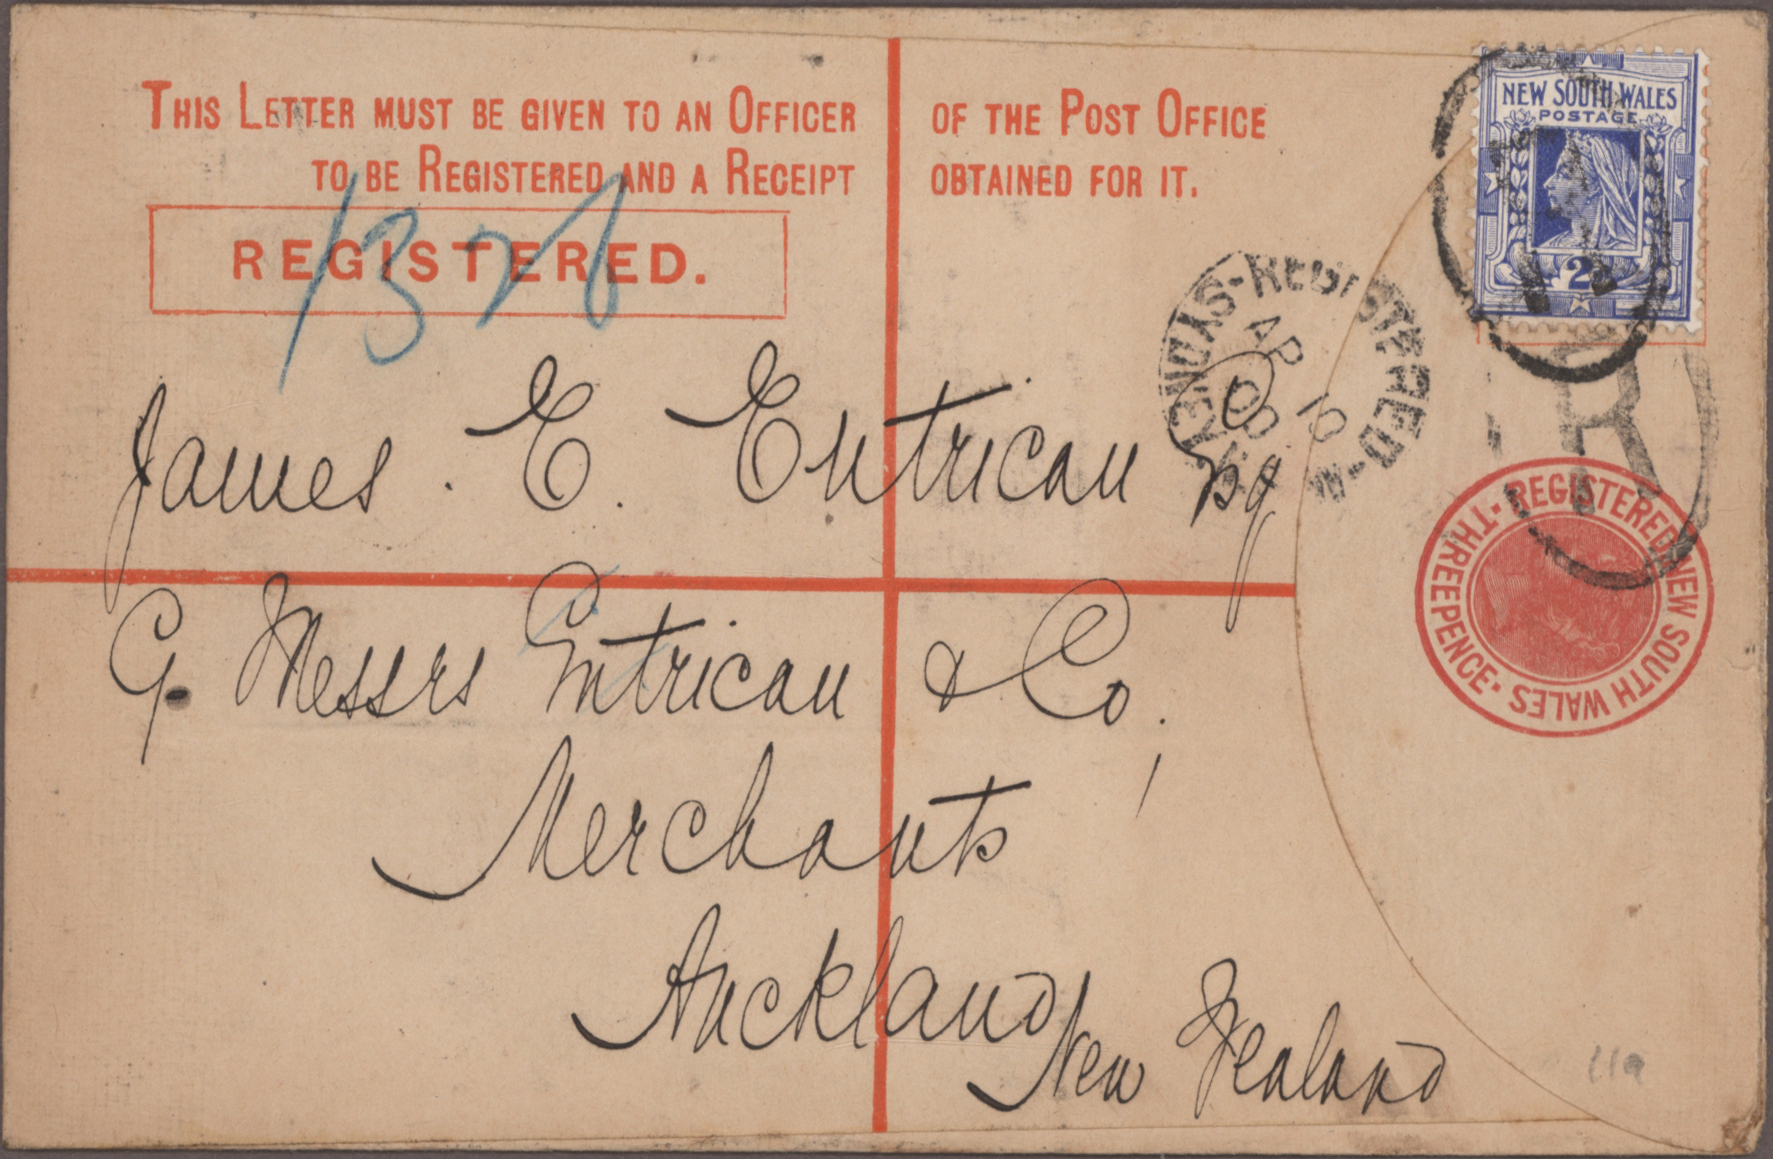 THIS LETTER MUST BE GIVEN TO AN OFFICER OF THE POST OFFICE
TO BE REGISTERED AND A RECEIPT OBTAINED FOR IT.
REGISTERED.
NEW SOUTH WALES
POSTAGE
2
REGISTERED
SYDNEY
AP 10
R
REGISTERED NEW SOUTH WALES · THREEPENCE ·
James E. Entrican Esq
C/- Messrs Entrican & Co.
Merchants
Auckland
New Zealand
11a